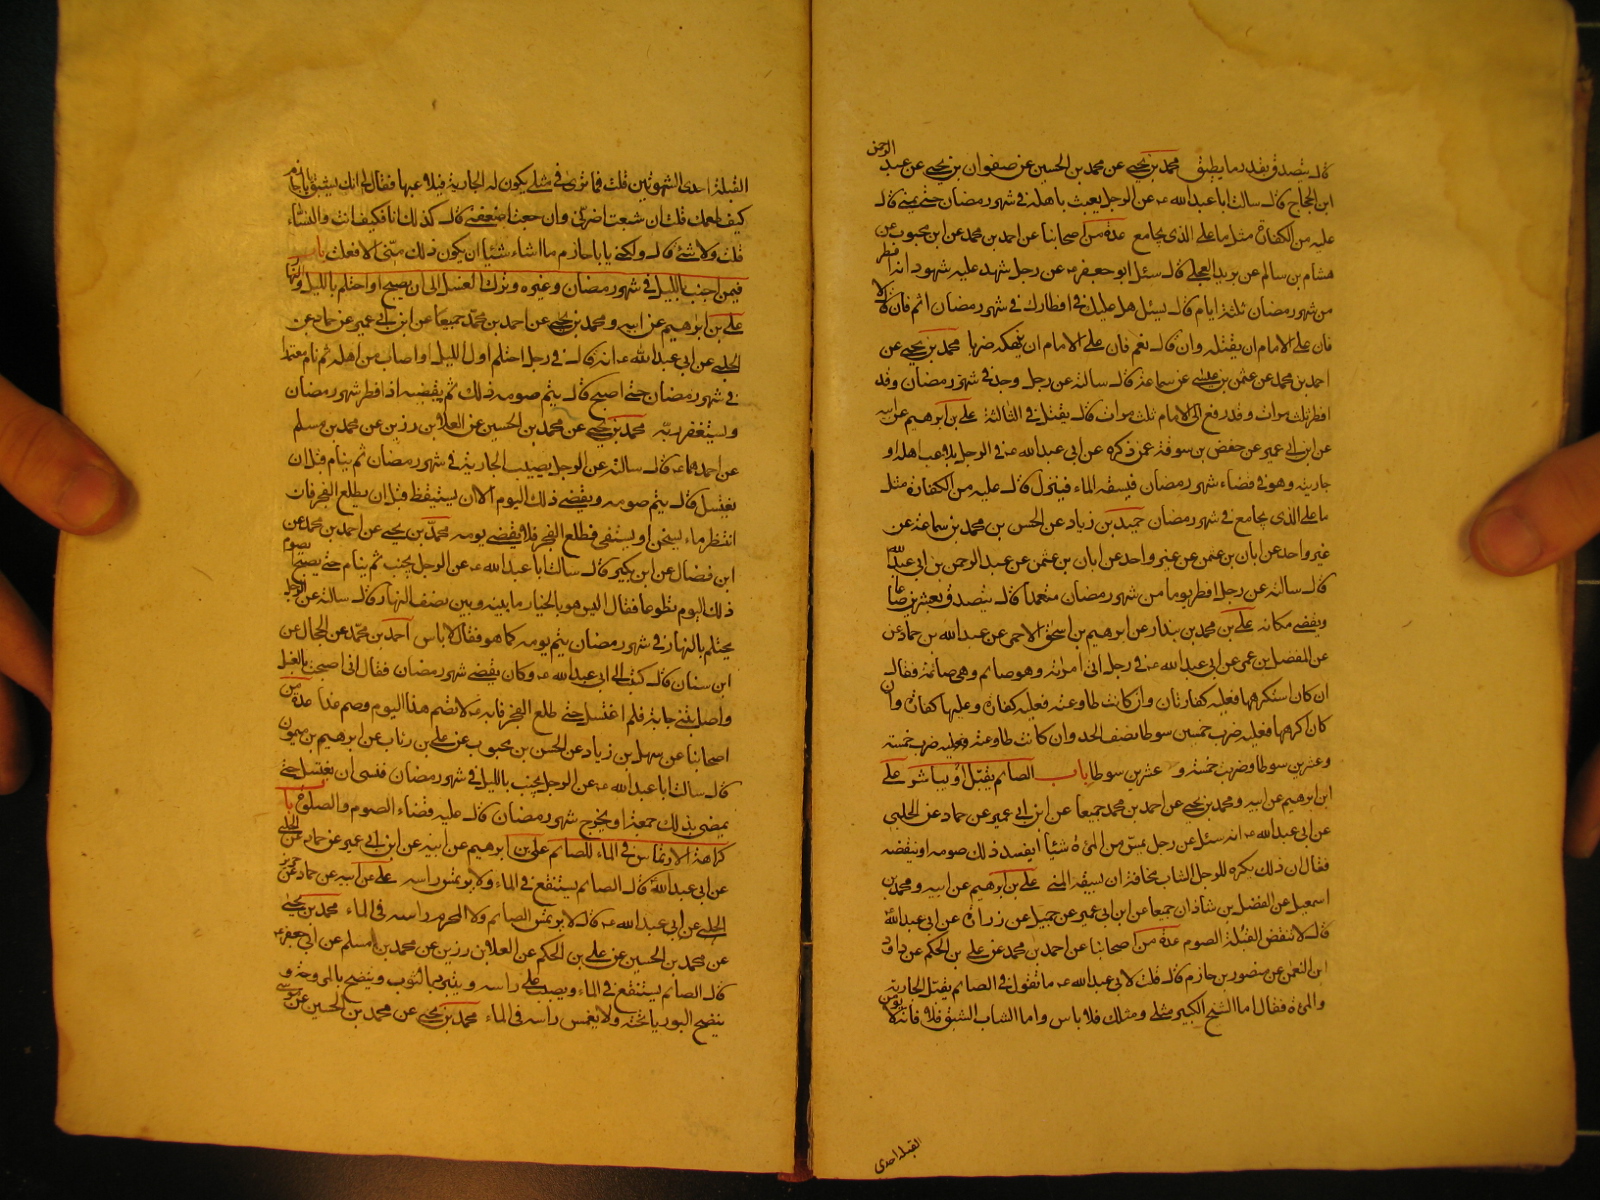 قال يتصدق بقدر ما يطيق محمد بن يحيى عن محمد بن الحسين عن صفوان بن يحيى عن عبد الرحمن
ابن الحجاج قال سالت ابا عبد الله عه عن الرجل يعبث باهله في شهر رمضان حتى يمني قال
عليه من الكفارة مثل ما على الذي يجامع عدة من اصحابنا عن احمد بن محمد عن ابن محبوب عن
هشام بن سالم عن بريد العجلي قال سئل ابو جعفر عه عن رجل شهد عليه شهود انه افطر
من شهر رمضان ثلثة ايام قال يسئل هل عليك في افطارك في شهر رمضان اثم فان قال لا
فان على الامام ان يقتله وان قال نعم فان على الامام ان ينهكه ضربا محمد بن يحيى عن
احمد بن محمد عن عثمن بن عيسى عن سماعة قال سالته عن رجل وجد في شهر رمضان وقد
افطر ثلث مرات وقد رفع الى الامام ثلث مرات قال يقتل في الثالثة علي بن ابرهيم عن ابيه
عن ابن ابي عمير عن حفص بن سوقة عمن ذكره عن ابي عبد الله عه في الرجل يلاعب اهله او
جاريته وهو في قضاء شهر رمضان فيسبقه الماء فينزل قال عليه من الكفارة مثل
ما على الذي يجامع في شهر رمضان حميد بن زياد عن الحسن بن محمد بن سماعة عن
غير واحد عن ابان بن عثمن عن عبد الرحمن بن ابي عبد الله
قال سالته عن رجل افطر يوما من شهر رمضان متعمدا قال يتصدق بعشرين صاعا
ويقضي مكانه علي بن محمد بن بندار عن ابرهيم بن اسحق الاحمر عن عبد الله بن حماد عن
عن المفضل بن عمر عن ابي عبد الله عه في رجل اتى امراته وهو صائم وهي صائمة فقال
ان كان استكرهها فعليه كفارتان وان كانت طاوعته فعليه كفارة وعليها كفارة وان
كان اكرهها فعليه ضرب خمسين سوطا نصف الحد وان كانت طاوعته فعليه ضرب خمسة
وعشرين سوطا وضربت خمسة وعشرين سوطا باب الصائم يقبل او يباشر علي
ابن ابرهيم عن ابيه ومحمد بن يحيى عن احمد بن محمد جميعا عن ابن ابي عمير عن حماد عن الحلبي
عن ابي عبد الله عه انه سئل عن رجل يمس من المرئة شيئا ايفسد ذلك صومه او ينقضه
فقال ان ذلك يكره للرجل الشاب مخافة ان يسبقه المني علي بن ابرهيم عن ابيه ومحمد بن
اسمعيل عن الفضل بن شاذان جميعا عن ابن ابي عمير عن جميل عن زرارة عن ابي عبد الله
قال لا تنقض القبلة الصوم عدة من اصحابنا عن احمد بن محمد عن علي بن الحكم عن داود
ابن النعمن عن منصور بن حازم قال قلت لابي عبد الله عه ما تقول في الصائم يقبل الجارية
والمرئة فقال اما الشيخ الكبير مثلي ومثلك فلا باس واما الشاب الشبق فلا فانه لا يؤمن
القبلة احدى
القبلة احدى الشهوتين قلت فما ترى في مثلي يكون له الجارية فيلاعبها فقال لي انك لشبق يا با حازم
كيف طعمك قلت ان شبعت اضرني وان جعت اضعفني قال كذلك انا فكيف انت والنساء
قلت ولا شئ قال ولكني يا با حازم ما اشاء شيئا ان يكون ذلك مني الا فعلت باب
فيمن اجنب بالليل في شهر رمضان وغيره وترك الغسل الى ان يصبح او احتلم بالليل والنهار
علي بن ابرهيم عن ابيه ومحمد بن يحيى عن احمد بن محمد جميعا عن ابن ابي عمير عن حماد عن
الحلبي عن ابي عبد الله عه انه قال في رجل احتلم اول الليل او اصاب من اهله ثم نام متعمدا
في شهر رمضان حتى اصبح قال يتم صومه ذلك ثم يقضيه اذا افطر شهر رمضان
ويستغفر ربه محمد بن يحيى عن محمد بن الحسين عن العلا بن رزين عن محمد بن مسلم
عن احدهما عه قال سالته عن الرجل يصيب الجارية في شهر رمضان ثم ينام قبل ان
يغتسل قال يتم صومه ويقضي ذلك اليوم الا ان يستيقظ قبل ان يطلع الفجر فان
انتظر ماء يسخن او يستقى فطلع الفجر فلا يقضي يومه محمد بن يحيى عن احمد بن محمد عن
ابن فضال عن ابن بكير قال سالت ابا عبد الله عه عن الرجل يجنب ثم ينام حتى يصبح ايصوم
ذلك اليوم تطوعا فقال اليس هو بالخيار ما بينه وبين نصف النهار قال سالته عن الرجل
يحتلم بالنهار في شهر رمضان يتم يومه كما هو فقال لا باس احمد بن محمد عن الحجال عن
ابن سنان قال كتب ابي الى ابي عبد الله عه وكان يقضي شهر رمضان فقال اني اصبحت بالغسل
واصابتني جنابة فلم اغتسل حتى طلع الفجر فاجابه عه لا تصم هذا اليوم وصم غدا عدة من
اصحابنا عن سهل بن زياد عن الحسن بن محبوب عن علي بن رئاب عن ابرهيم بن ميمون
قال سالت ابا عبد الله عه عن الرجل يجنب بالليل في شهر رمضان فنسي ان يغتسل حتى
يمضي بذلك جمعة او يخرج شهر رمضان قال عليه قضاء الصوم والصلوة باب
كراهة الارتماس في الماء للصائم علي بن ابرهيم عن ابيه عن ابن ابي عمير عن حماد عن الحلبي
عن ابي عبد الله قال الصائم يستنقع في الماء ولا يرتمس راسه علي عن ابيه عن حماد عن حريز
عن ابي عبد الله عه قال لا يرتمس الصائم ولا المحرم راسه في الماء محمد بن يحيى
عن محمد بن الحسين عن علي بن الحكم عن العلا بن رزين عن محمد بن مسلم عن ابي جعفر عه
قال الصائم يستنقع في الماء ويصب على راسه ويتبرد بالثوب وينضح بالمروحة و
ينضح البوريا تحته ولا يغمس راسه في الماء محمد بن يحيى عن محمد بن الحسين عن موسى